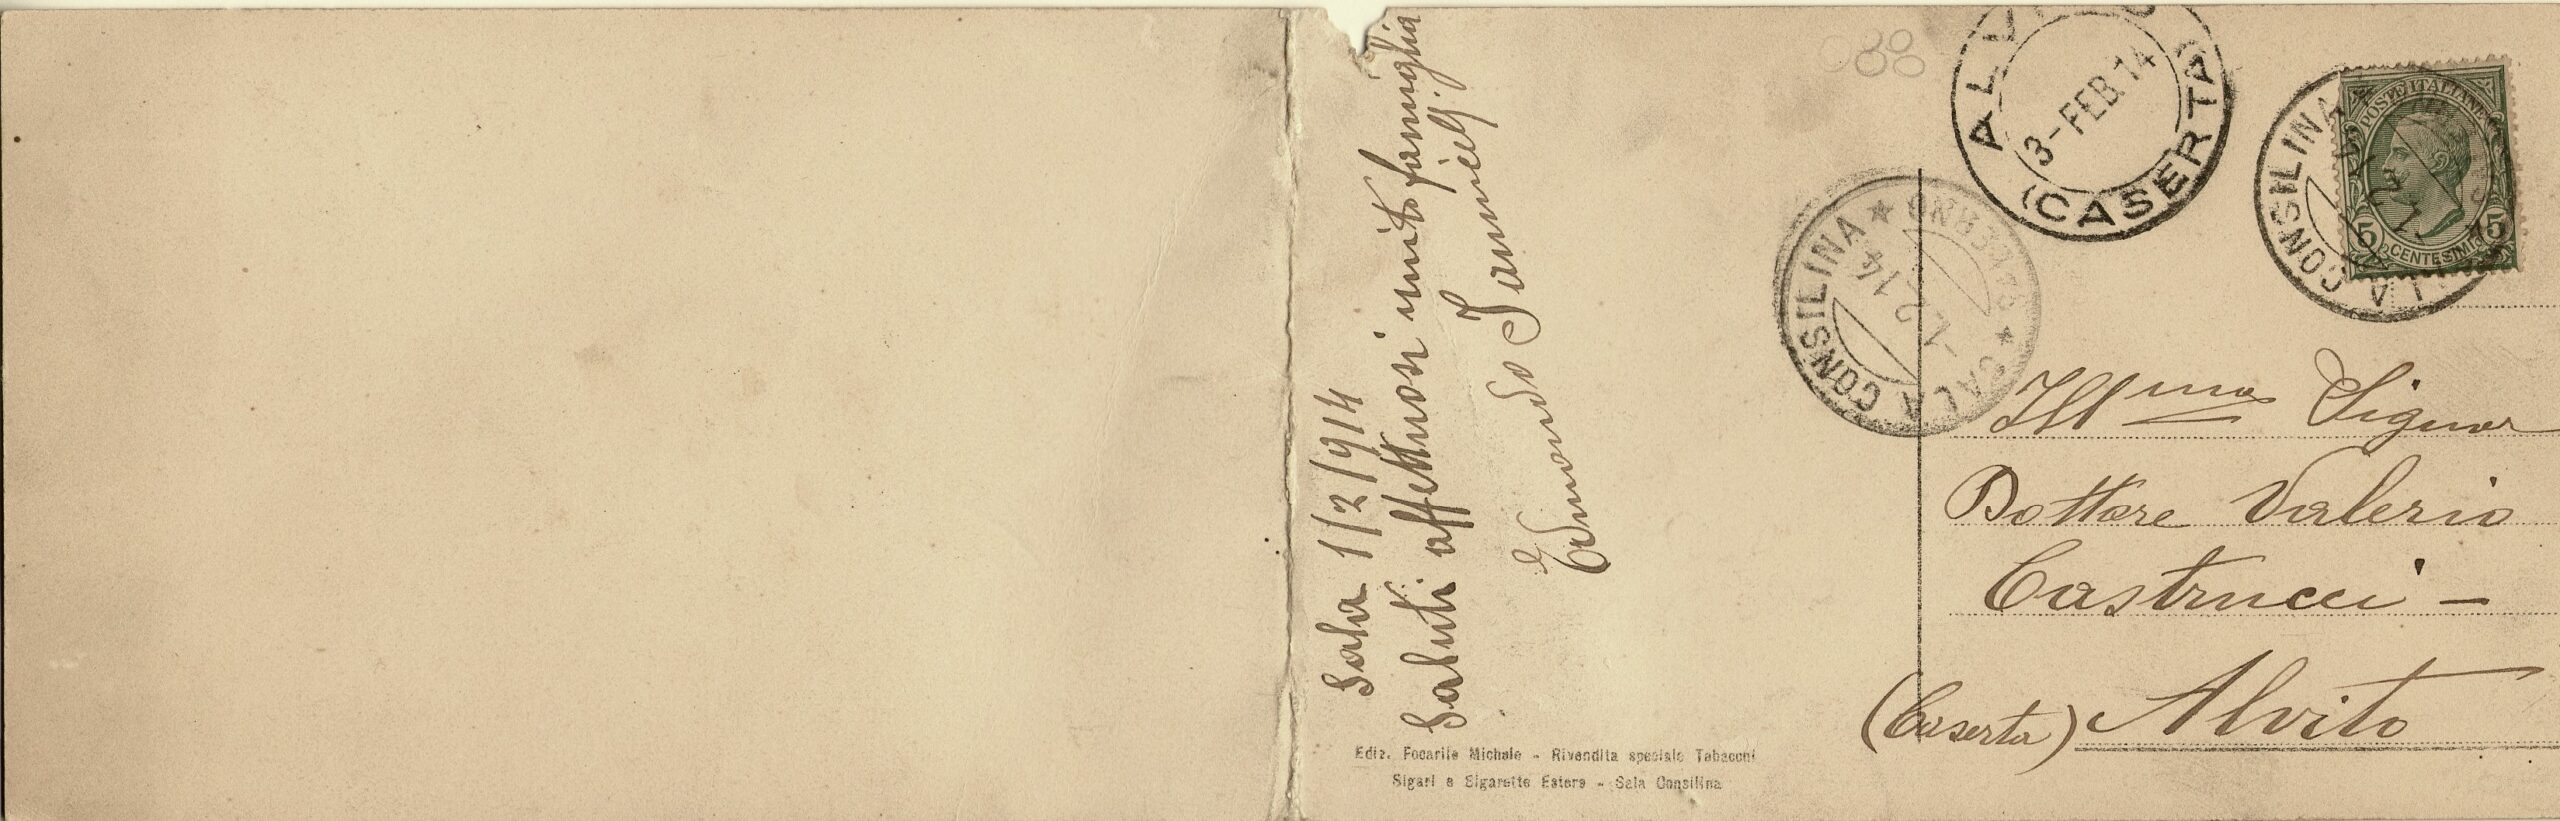 Sala 1/2/914
Saluti affettuosi unito famiglia
Edmondo
Ediz. Focarile Michele - Rivendita speciale Tabacchi
Sigari e Sigarette Estere - Sala Consilina
088
ALV
3-FEB.14
(CASERTA)
SALA CONSILINA * SALERNO *
1.2.14
CONSILINA
POSTE ITALIANE
5 CENTESIMI 5
Ill.mo Signor
Dottore Valerio
Castrucci -
(Caserta) Alvito